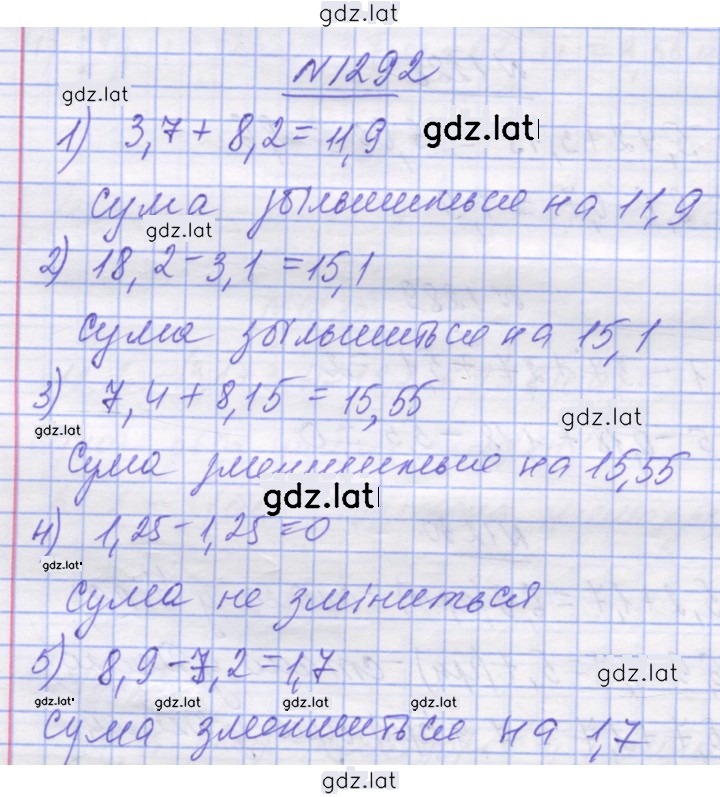 gdz.lat
N1292
gdz.lat
1) 3,7 + 8,2 = 11,9 gdz.lat
сума збільшиться на 11,9
gdz.lat
2) 18,2 - 3,1 = 15,1
сума збільшиться на 15,1
3) 7,4 + 8,15 = 15,55
gdz.lat gdz.lat
сума зменшиться на 15,55
gdz.lat
4) 1,25 - 1,25 = 0
gdz.lat
сума не зміниться
5) 8,9 - 7,2 = 1,7 gdz.lat
gdz.lat gdz.lat gdz.lat gdz.lat
сума зменшиться на 1,7
gdz.lat